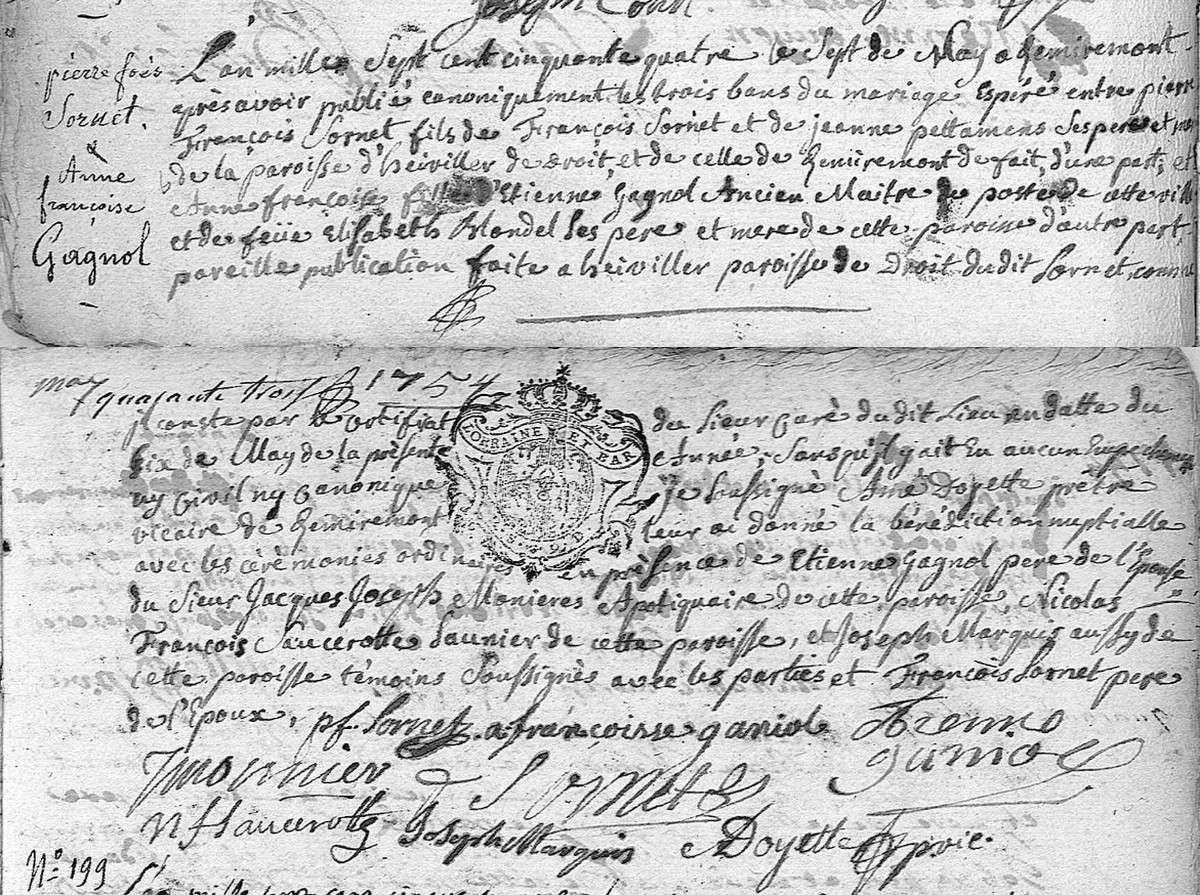 pierre fois
Sornet.
&
Anne
françoise
Gagnol
L'an mille Sept cent cinquante quatre le Sept de May a Remiremont
après avoir publié canoniquement les trois bans du mariage Espéré entre pierre
François Sornet fils de François Sornet et de jeanne pettamens Ses pere et mere
de la paroisse d'heiviller de droit et de celle de Remiremont de fait, d'une part; et
Anne françoise fille d'Etienne Gagnol Ancien Maitre de poste de cette ville
et de feüe Elisabeth Blondel Ses pere et mere de cette paroisse d'autre part,
pareille publication faite a heiviller paroisse de Droit du dit Sornet, comme
may quarante trois 1754
LORRAINE ET BAR
il conste par le certificat du Sieur Curé du dit Lieu en datte du
Six de May de la présente Année, Sans qu'il y ait Eu aucun Empechement
ny Civil ny Canonique je Soussigné Amé Doyette prêtre
vicaire de Remiremont leur ai donné la bénédiction nuptialle
avec les cérémonies ordinaires en présence de Etienne Gagnol pere de l'Epouse
du Sieur Jacques Joseph Monieres Apotiquaire de cette paroisse, Nicolas
François Saucerotte Saunier de cette paroisse, et Joseph Marquis aussy de
cette paroisse témoins Soussignés avec les parties et François Sornet pere
de l'Epoux. pf Sornet a françoisse ganiol
ganiol
f Sornet
n f Saucerotte Joseph Marquis A Doyette
N.° 199